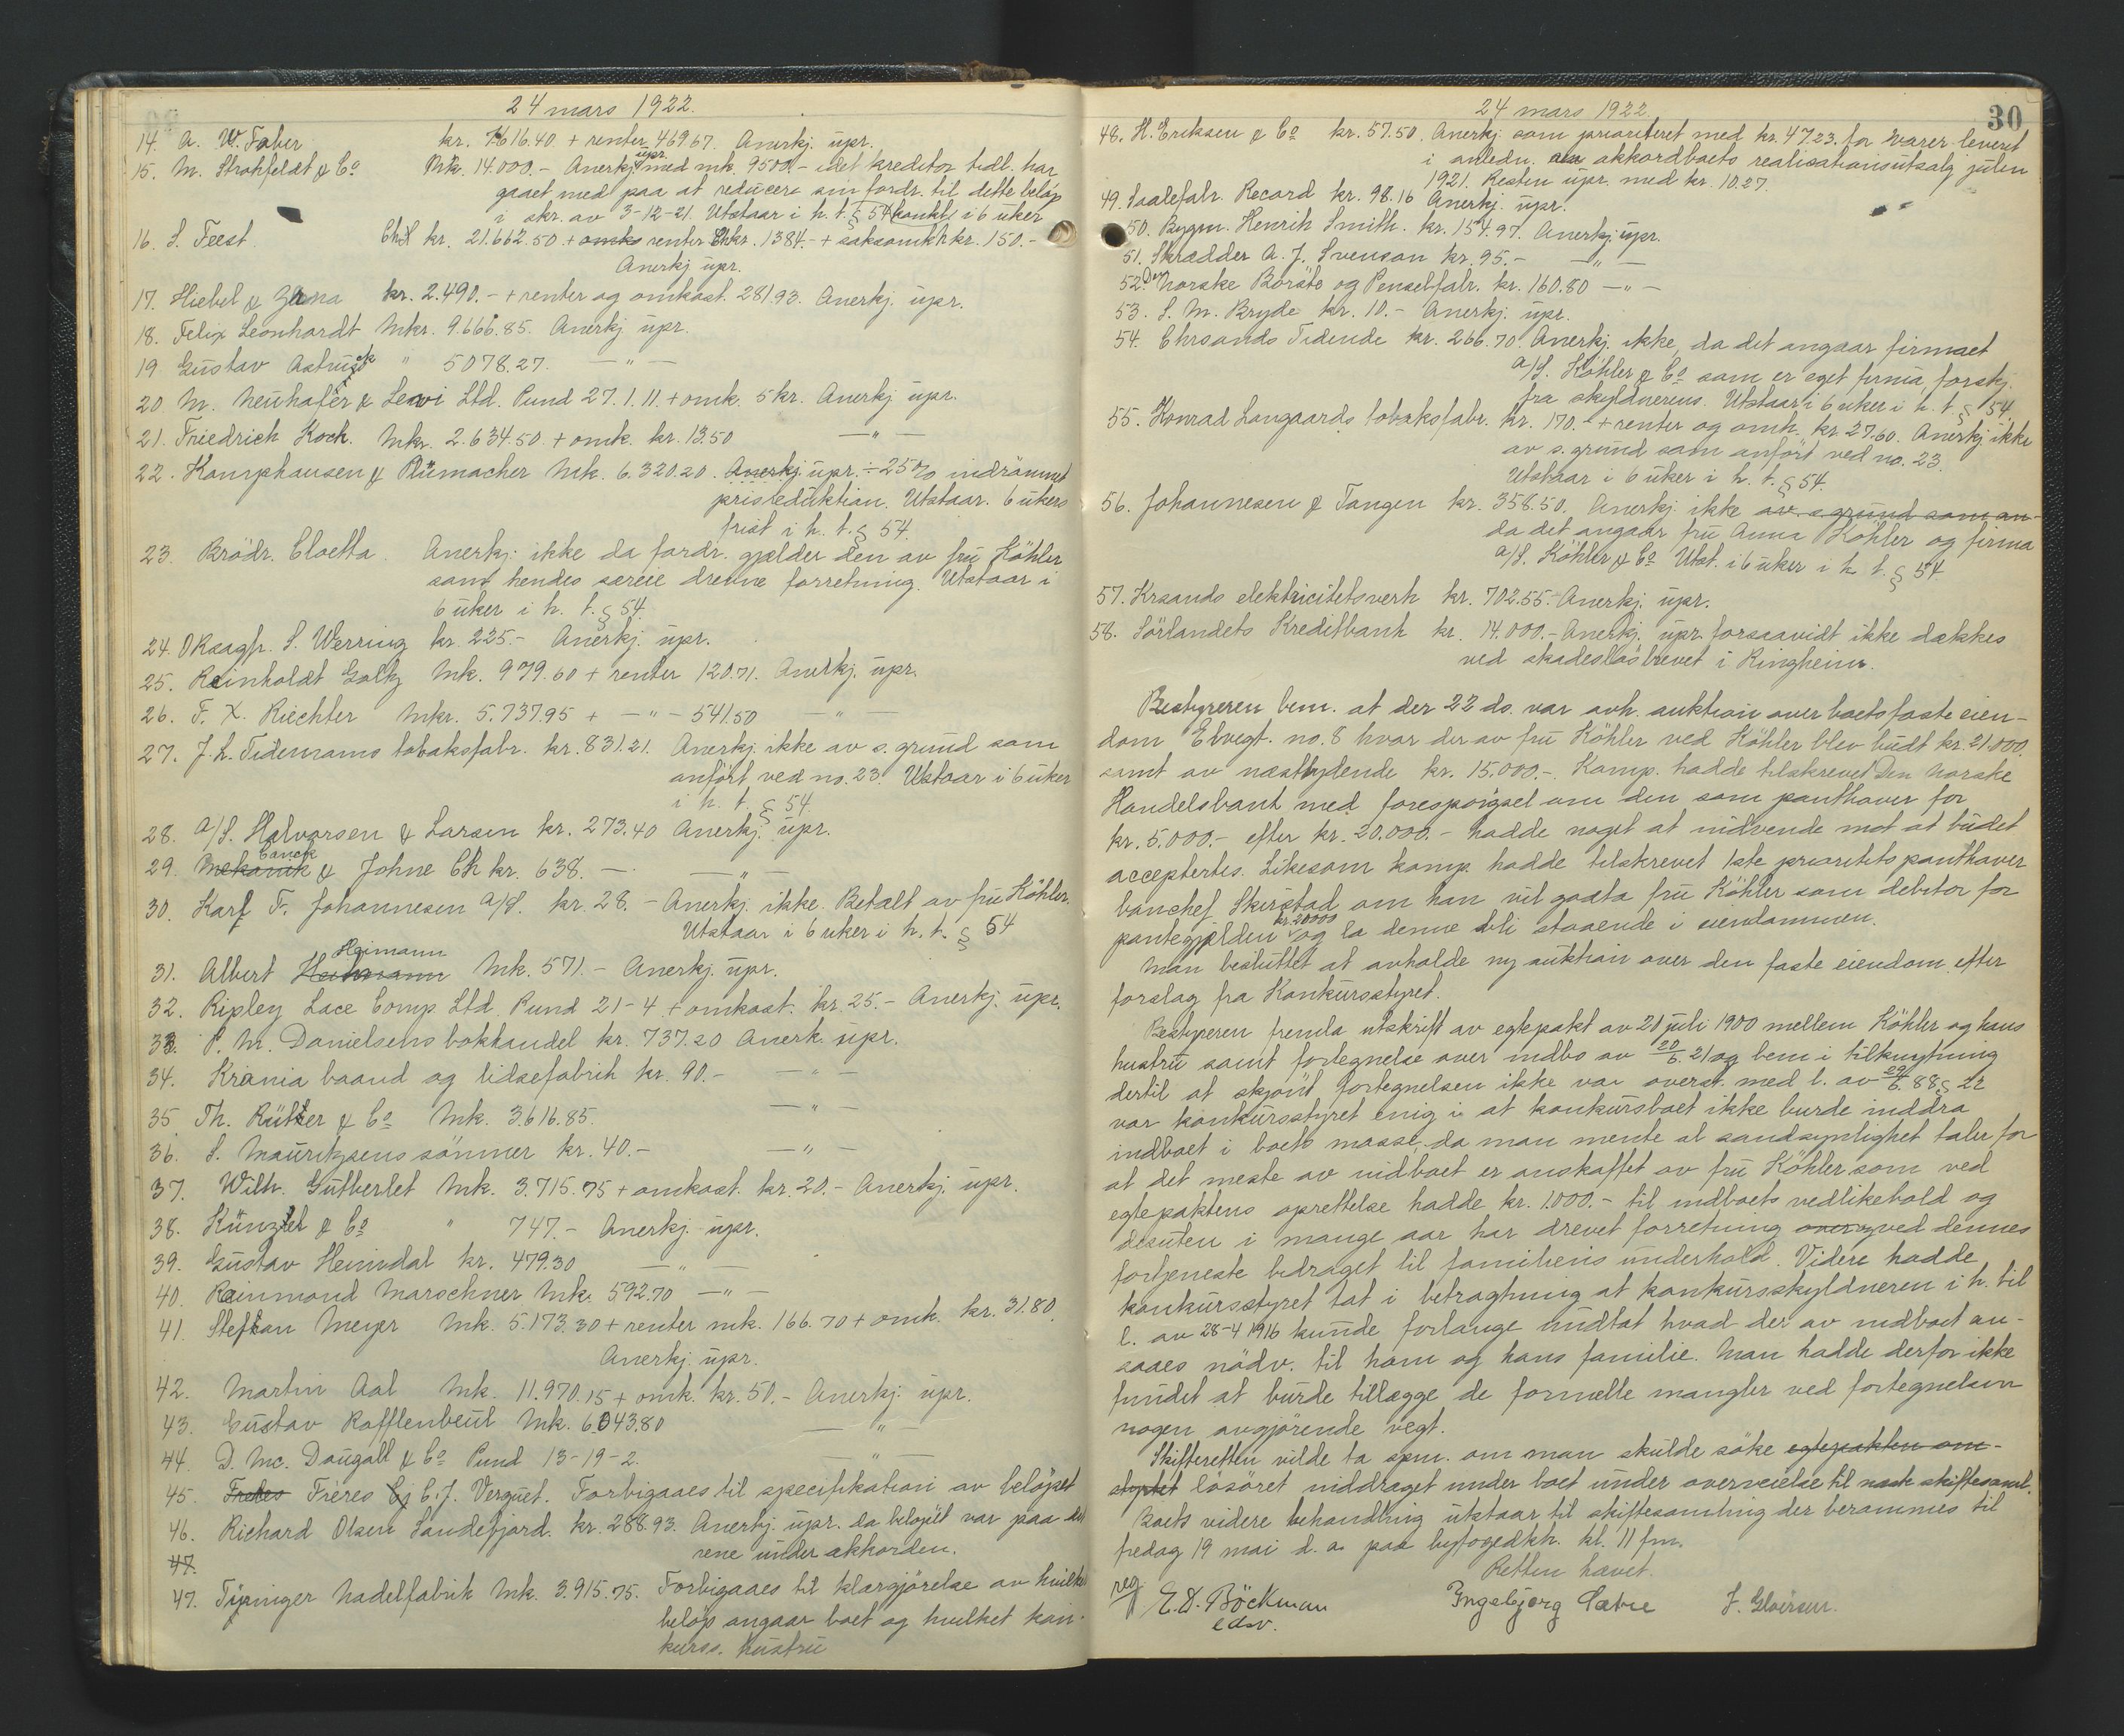 24 mars 1922.
14. A. W. Faber kr. 7616.40 + renter 469.67. Anerkj. upr.
15. M. Strohfeldt & Co Mk. 14.000.- Anerkj. upr. med mk. 9500.- idet kreditor tidl. har
gaaet med paa at reducere sin fordr. til dette beløp
i skr. av 3-12-21. Utstaar i h. t. § 54 konkl. i 6 uker
16. S. Feest. Ch kr. 21.662.50 + omk renter Chkr. 1384.- + saksomk. kr. 150.-
Anerkj. upr.
17. Hiebel & kr. 2.490.- + renter og omkost. 281.93. Anerkj. upr.
18. Felix Leonhardt Mkr. 9.666.85. Anerkj. upr.
19 Gustav Astruck " 5078.27. — " —
20 M. Neuhafer & Levi Ltd. Pund 27.1.11. + omk. 5 kr. Anerkj. upr.
21. Friedrich Koch. Mkr. 2.634.50 + omk. kr. 13.50 — " —
22. Kamphausen & Plümacher Mk. 6.320.20. Anerkj. upr. ÷ 25% indrømmet
prisreduktion. Utstaar. 6 ukers
frist i h. t. § 54.
23. Brödr. Cloetta. Anerkj. ikke da fordr. gjælder den av fru Köhler
som hendes særeie drevne forretning. Utstaar i
6 uker i h. t. § 54.
24. O.R.sagfr. S. Werring kr. 225.- Anerkj. upr.
25. Reinholdt Golky Mk. 979.60 + renter 120.71. Anerkj. upr.
26. F. X. Riechter Mkr. 5.737.95 + — " — 541.50 — " —
27. J. L. Tidemanns tobaksfabr. kr. 831.21. Anerkj. ikke av s. grund som
anført ved no. 23. Utstaar i 6 uker
i h. t. § 54.
28. A/S. Halvorsen & Larsen kr. 273.40 Anerkj. upr.
29. Mekanik Canek & Johne Ch kr. 638. — — " —
30. Karl F. Johannesen A/S. kr. 28. - Anerkj. ikke. Betalt av fru Köhler.
Utstaar i 6 uker i h. t. § 54
31. Albert Heimann Mk. 571.- Anerkj. upr.
32. Ripley Lace Comp. Ltd. Pund 21-4 + omkost. kr. 25.- Anerkj. upr.
33. P. M. Danielsens bokhandel kr. 737.20 Anerk. upr.
34. Krania baand og lidsefabrik kr. 90.- — " —
35 Th. Rütter & Co Mk. 3.616.85. — " —
36. S. Mauritzsens sønner kr. 40.- — " —
37. Wilh. Gutberlet Mk. 3.715.75 + omkost. kr. 20.- Anerkj. upr.
38. Künzel & Co " 747.- Anerkj. upr.
39. Gustav Heimdal kr. 479.30 — " —
40. Reinmond Marschner Mk. 592.70 — " —
41. Steffan Meyer Mk. 5.173.30 + renter mk. 166.70 + omk. kr. 31.80.
Anerkj. upr.
42. Martin Aal Mk. 11.970.15 + omk. kr. 50.- Anerkj. upr.
43. Gustav Rafflenbeul Mk. 6043.80 — " —
44. D. Mc. Dougall & Co Pund 13-19-2. — " —
45. Freres Fréres C. J. Verguet. Forbigaaes til specifikation av beløpet
46. Richard Olsen Sandefjord. kr. 288.93. Anerkj. upr. da beløpet var paa det
rene under akkorden.
47.
47. Tyringer Nadelfabrik Mk. 3.915.75. Forbigaaes til klargjørelse av hvilke
beløp angaar boet og hvilket kon-
kurss. hustru
24 mars 1922.
30
48. H. Eriksen & Co kr. 57.50. Anerkj. som prioriteret med kr. 47.23. for varer leveret
i anledn. av akkordboets realisationsutsalg julen
1921. Resten upr. med kr. 10.27.
49. Saalefabr. Record kr. 98.16 Anerkj. upr.
50. Bygm. Henrik Smith. kr. 154.97. Anerkj. upr.
51. Skrædder A. J. Svenson kr. 95.- — " —
52. Den Norske Børste og Penselfabr. kr. 160.80 — " —
53. S. M. Bryde kr. 10.- Anerkj. upr.
54. Chrsands Tidende kr. 266.70. Anerkj. ikke, da det angaar firmaet
A/S. Köhler & Co som er eget firma, forskj.
fra skyldnerens. Utstaar i 6 uker i h. t. § 54.
55. Konrad Langaards tobaksfabr. kr. 170.- + renter og omk. kr. 27.60. Anerkj. ikke
av s. grund som anført ved no. 23.
Utstaar i 6 uker i h. t. § 54.
56. Johannesen & Tangen kr. 358.50. Anerkj. ikke av s grund som an-
da det angaar fru Anna Köhler og firma
A/S. Köhler & Co Utst. i 6 uker i h. t. § 54.
57. Krsands elektricitetsverk kr. 702.55.- Anerkj. upr.
58. Sørlandets Kreditbank kr. 14.000.- Anerkj. upr. forsaavidt ikke dækkes
ved skadesløsbrevet i Ringheim.
Bestyreren bem. at der 22 ds. var avh. auktion over boets faste eien-
dom Elvegt. no. 8 hvor der av fru Köhler ved Köhler blev budt kr. 21.000.
samt av næstbydende kr. 15.000.-. Komp. hadde tilskrevet Den Norske
Handelsbank med forespørgsel om den som panthaver for
kr. 5.000.- efter kr. 20.000.- hadde noget at indvende mot at budet
acceptertes. Likesom komp. hadde tilskrevet 1ste prioritets panthaver
banchef Skirstad om han vil godta fru Köhler som debitor for
pantegjælden kr. 20000 og la denne bli staaende i eiendommen.
Man besluttet at avholde ny auktion over den faste eiendom efter
forslag fra Konkursstyret.
Bestyreren fremla utskrift av egtepakt av 21 juli 1900 mellem Köhler og hans
hustru samt fortegnelse over indbo av 20/6. 21 og bem. i tilknytning
dertil at skjønt fortegnelsen ikke var overst. med l. av 29/6. 88 § 22
var konkursstyret enig i at konkursboet ikke burde inddra
indboet i boets masse, da man mente at sandsynlighet taler for
at det meste av indboet er anskaffet av fru Köhler som ved
egtepaktens oprettelse hadde kr. 1.000.- til indboets vedlikehold og
desuten i mange aar har drevet forretning ved dennes
fortjeneste bidraget til familiens underhold. Videre hadde
konkursstyret tat i betragtning at konkursskyldneren i h. til
l. av 28-4 1916 kunde forlange undtat hvad der av indboet an-
saaes nødv. til ham og hans familie. Man hadde derfor ikke
fundet at burde tillægge de formelle mangler ved fortegnelsen
nogen avgjørende vegt.
Skifteretten vilde ta spm. om man skulde søke egtepakten om-
støtet løsøret inddraget under boet under overveielse til næste skiftesaml.
Boets videre behandling utstaar til skiftesamling der berammes til
fredag 19 mai d. a. paa byfogedkh. kl. 11 fm.
Retten hævet.
reg
E. D. Böckman
edsv.
Ingebjørg Sæbre